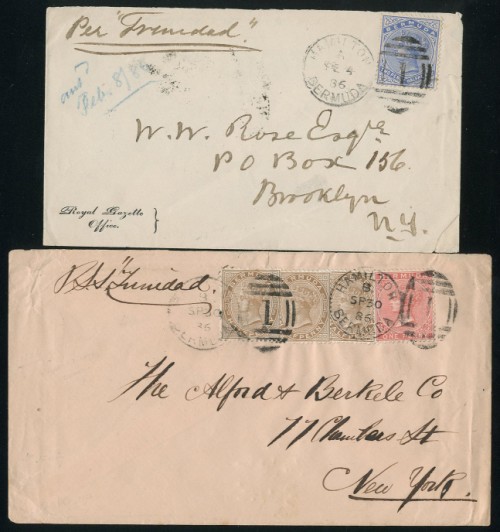 Per "Trinidad".
BERMUDA
HAMILTON
FE 4
86
BERMUDA
1
Feb. 8/86
W. W. Rose Esqre
PO Box 156.
Brooklyn
N.Y.
Royal Gazette
Office.
"Trinidad.
HAMILTON
B
SP 30
86
BERMUDA
1
ONE
The Alford & Berkele Co
77 Chambers St
New York.